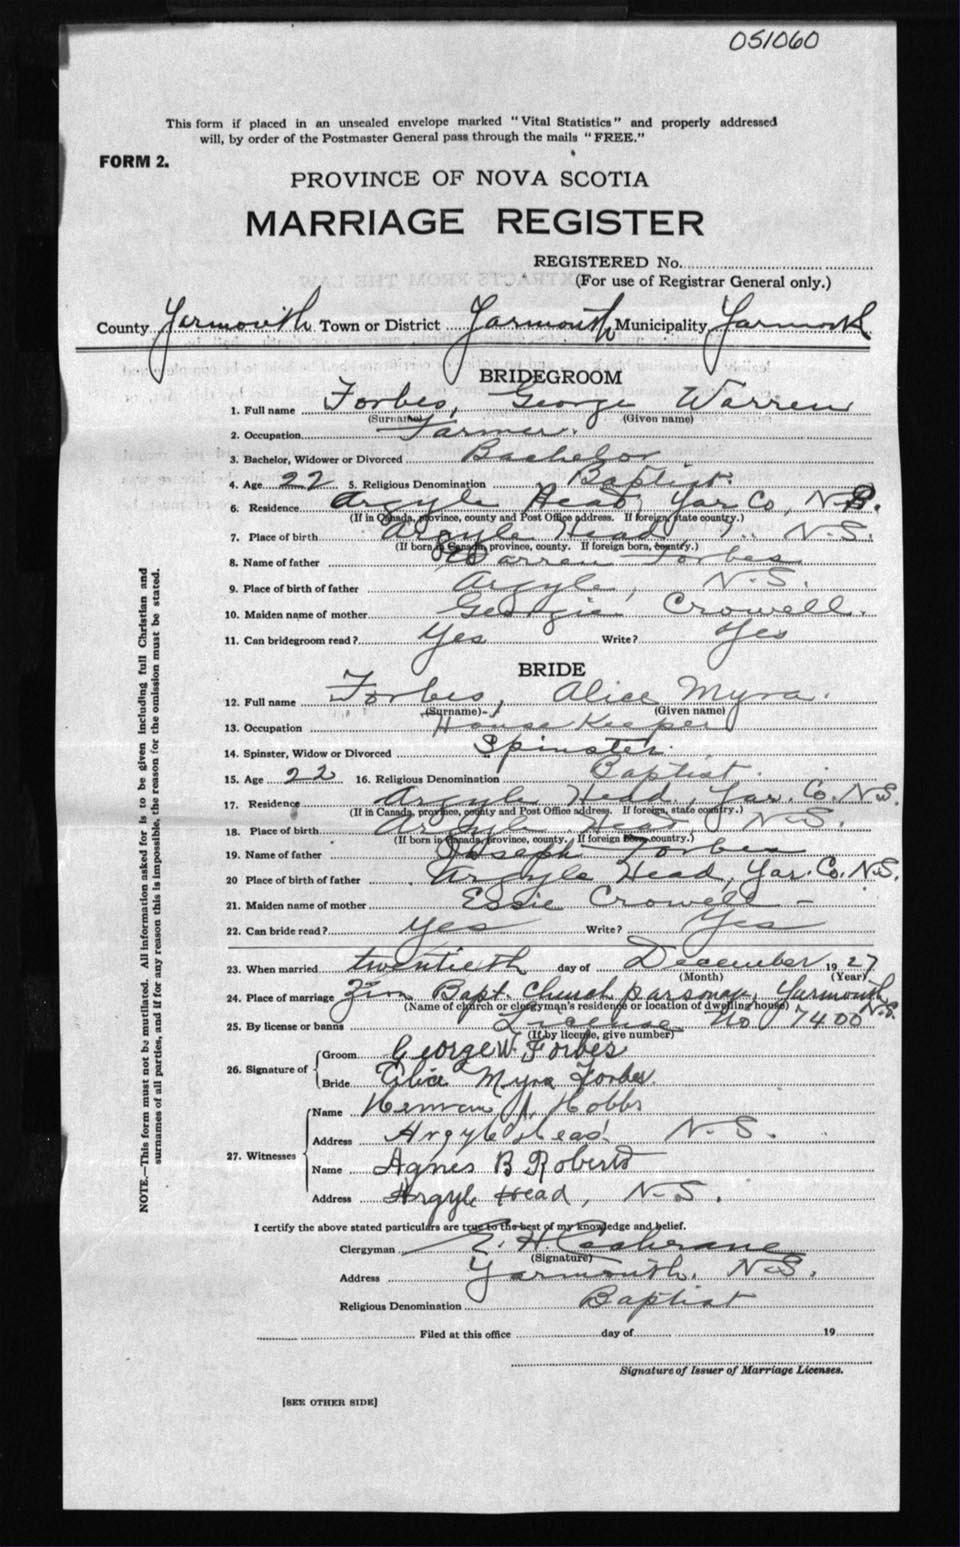 051060
This form if placed in an unsealed envelope marked "Vital Statistics" and properly addressed
will, by order of the Postmaster General pass through the mails "FREE."
FORM 2.
PROVINCE OF NOVA SCOTIA
MARRIAGE REGISTER
REGISTERED No.
(For use of Registrar General only.)
County Yarmouth Town or District Yarmouth Municipality Yarmouth
BRIDEGROOM
1. Full name Forbes, George Warren
(Surname) (Given name)
2. Occupation Farmer.
3. Bachelor, Widower or Divorced Bachelor
4. Age 22 5. Religious Denomination Baptist.
6. Residence Argyle Head, Yar Co, N.S.
(If in Canada, province, county and Post Office address. If foreign, state country.)
7. Place of birth Argyle Head N.S.
(If born in Canada, province, county. If foreign born, country.)
8. Name of father Warren Forbes
9. Place of birth of father Argyle, N.S.
10. Maiden name of mother Georgie Crowell.
11. Can bridegroom read? Yes Write? Yes
BRIDE
12. Full name Forbes, Alice Myra.
(Surname) (Given name)
13. Occupation House Keeper
14. Spinster, Widow or Divorced Spinster.
15. Age 22 16. Religious Denomination Baptist.
17. Residence Argyle Head, Yar. Co. N.S.
(If in Canada, province, county and Post Office address. If foreign, state country.)
18. Place of birth Argyle Head, N.S.
(If born in Canada, province, county. If foreign born, country.)
19. Name of father Joseph Forbes
20 Place of birth of father Argyle Head, Yar. Co. N.S.
21. Maiden name of mother Essie Crowell -
22. Can bride read? Yes Write? Yes
23. When married twentieth day of December 1927
(Month) (Year)
24. Place of marriage Zion Bapt. Church parsonage, Yarmouth N.S.
(Name of church or clergyman's residence or location of dwelling house)
25. By license or banns License No 7400
(If by license, give number)
26. Signature of
Groom George W. Forbes
Bride Alice Myra Forbes.
27. Witnesses
Name Herman A. Hobbs
Address Argyle Head N.S.
Name Agnes B Roberts
Address Argyle Head, N.S.
I certify the above stated particulars are true to the best of my knowledge and belief.
Clergyman E. H. Cochrane
(Signature)
Address Yarmouth, N.S.
Religious Denomination Baptist
Filed at this office day of 19
Signature of Issuer of Marriage Licenses.
[SEE OTHER SIDE]
NOTE.—This form must not be mutilated. All information asked for is to be given including full Christian and
surnames of all parties, and if for any reason this is impossible, the reason for the omission must be stated.